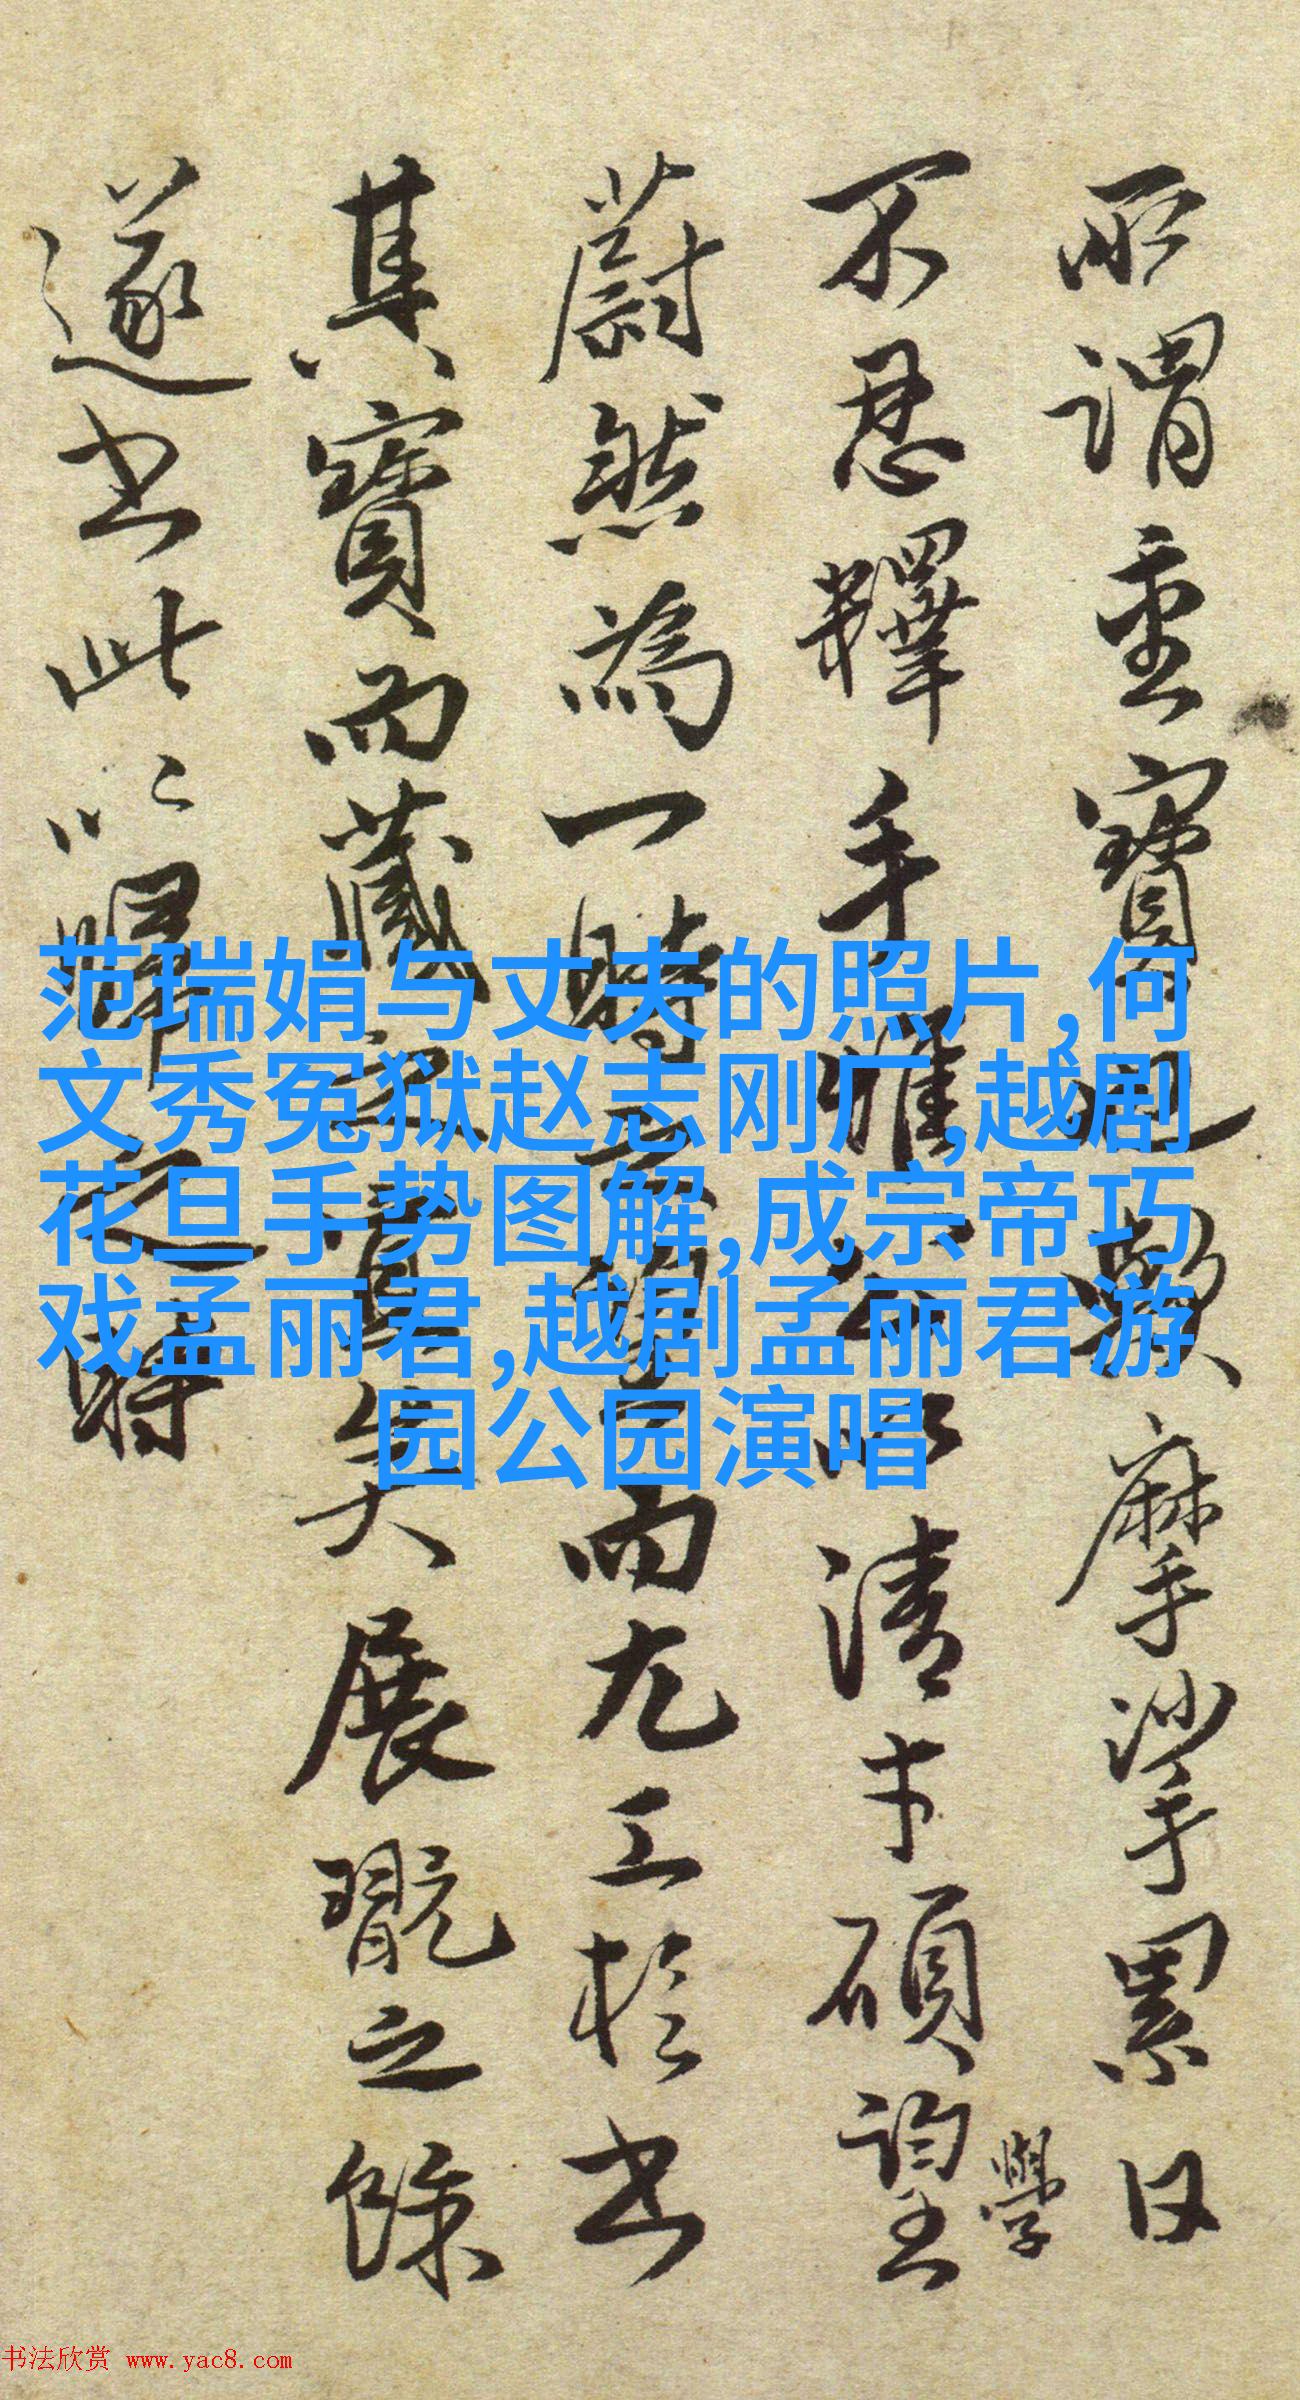 所謂重寶也歎摩挲累日
不忍釋手惟清才碩望
學
蔚然為一時而尤工於書
其寶而藏之展翫之餘
遂書此以歸之時
范瑞娟与丈夫的照片,何
文秀冤狱赵志刚广,越剧
花旦手势图解,成宗帝巧
戏孟丽君,越剧孟丽君游
园公园演唱
书法欣赏 www.yac8.com